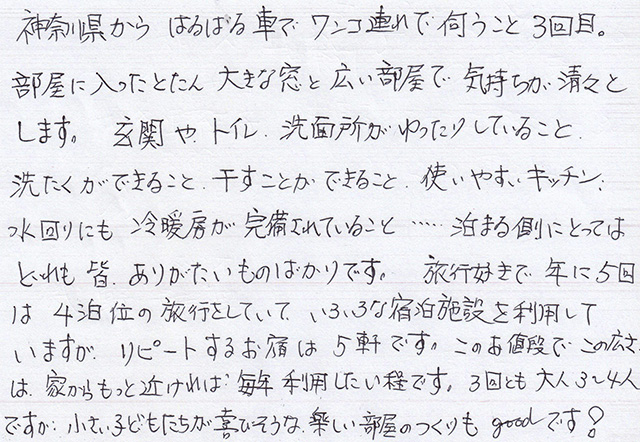 神奈川県から はるばる 車で ワンコ連れで 伺うこと 3回目。
部屋に入ったとたん 大きな窓と 広い部屋で 気持ちが 清々と
します。 玄関や、トイレ、洗面所が ゆったりしていること、
洗たくができること、干すことができること、使いやすいキッチン、
水回りにも 冷暖房が 完備されていること …… 泊まる側にとっては
どれも 皆、ありがたいものばかりです。 旅行好きで 年に5回
は 4泊位の 旅行をしていて いろいろな宿泊施設を利用して
いますが、リピートするお宿は 5軒です。このお値段で この広さ
は、家からもっと近ければ 毎年 利用したい程です。3回とも 大人3〜4人
ですが、小さい子どもたちが 喜びそうな、楽しい部屋のつくりも goodです!